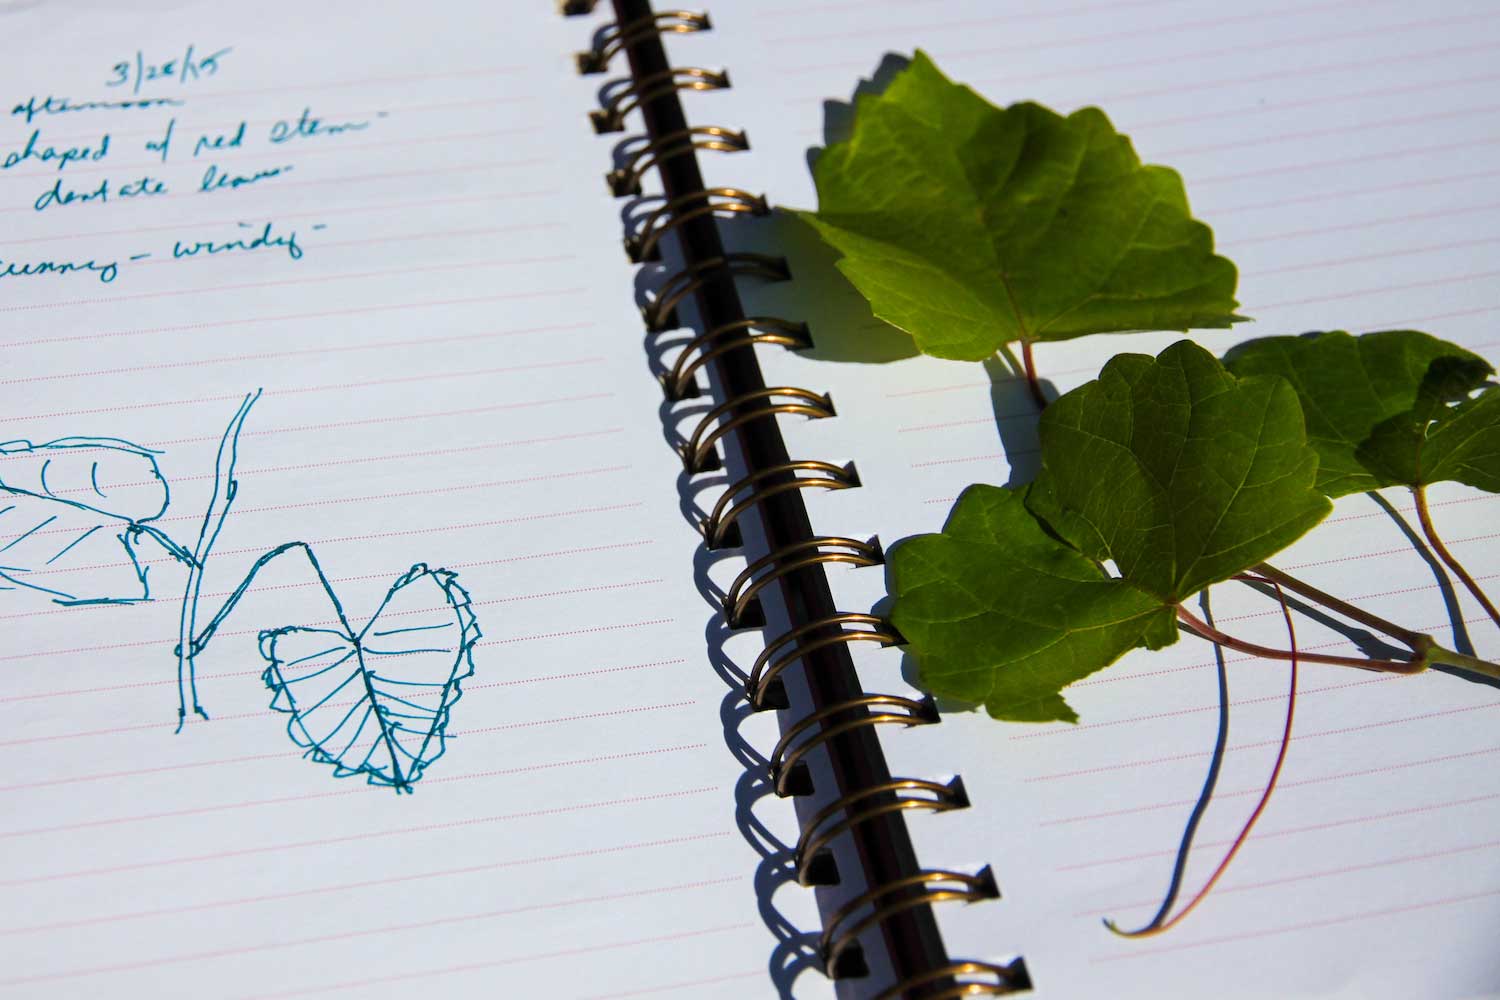 3/28/15
afternoon
shaped w/ red stem-
dentate leaves
sunny - windy -